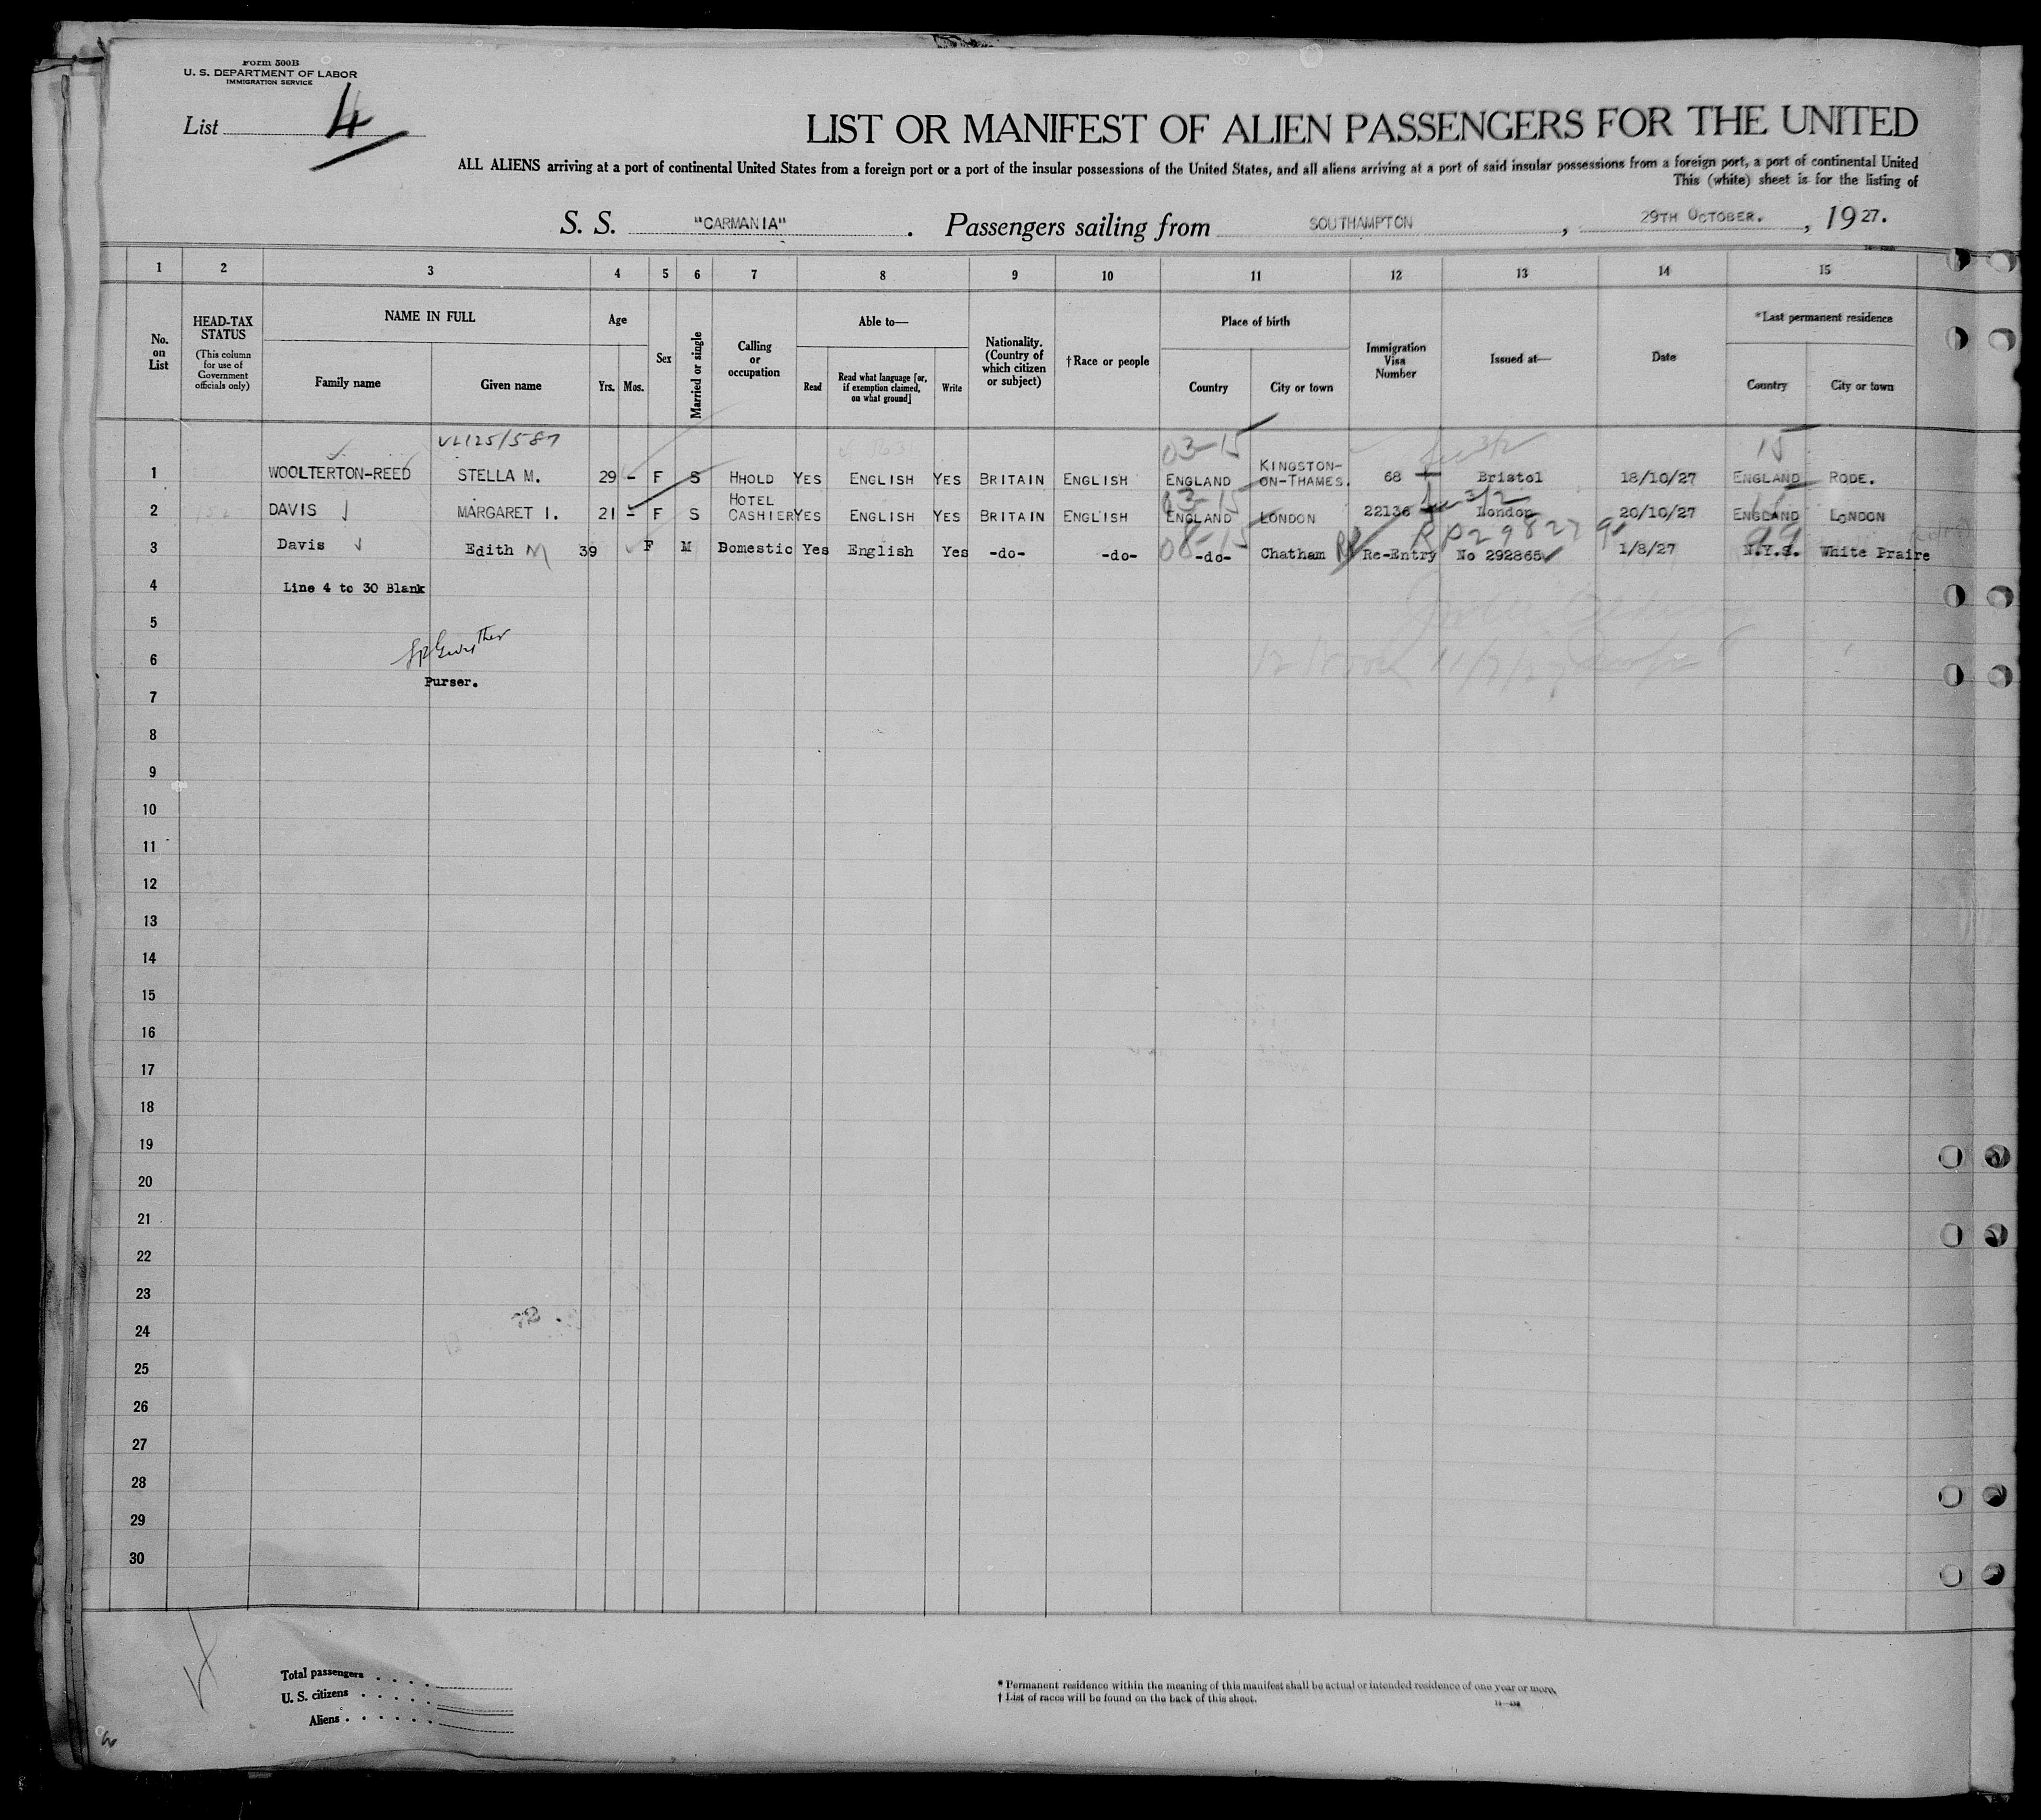 Form 500B
U. S. DEPARTMENT OF LABOR
IMMIGRATION SERVICE
List 4
LIST OR MANIFEST OF ALIEN PASSENGERS FOR THE UNITED
ALL ALIENS arriving at a port of continental United States from a foreign port or a port of the insular possessions of the United States, and all aliens arriving at a port of said insular possessions from a foreign port, a port of continental United
This (white) sheet is for the listing of
S. S. "CARMANIA" . Passengers sailing from SOUTHAMPTON , 29TH OCTOBER. , 1927.
1 2 3 4 5 6 7 8 9 10 11 12 13 14 15
No. on List
HEAD-TAX STATUS
(This column for use of Government officials only)
NAME IN FULL
Family name Given name
Age
Yrs. Mos.
Sex
Married or single
Calling or occupation
Able to—
Read
Read what language [or, if exemption claimed, on what ground]
Write
Nationality. (Country of which citizen or subject)
†Race or people
Place of birth
Country City or town
Immigration Visa Number
Issued at—
Date
*Last permanent residence
Country City or town
03-15 15
1 WOOLTERTON-REED STELLA M. 29 - F S HHOLD YES ENGLISH YES BRITAIN ENGLISH ENGLAND KINGSTON-ON-THAMES. 68 Bristol 18/10/27 ENGLAND RODE.
03-15 3/2
2 DAVIS MARGARET I. 21 - F S HOTEL CASHIER YES ENGLISH YES BRITAIN ENGLISH ENGLAND LONDON 22136 London 20/10/27 ENGLAND LONDON
08-15 RP 298279 99
3 Davis Edith M 39 F M Domestic Yes English Yes -do- -do- -do- Chatham Re-Entry No 292865 1/8/27 N.Y.S. White Praire
4 Line 4 to 30 Blank
5
6
Purser.
7
8
9
10
11
12
13
14
15
16
17
18
19
20
21
22
23
24
25
26
27
28
29
30
Total passengers . . . .
U. S. citizens . . . . .
Aliens . . . . . .
* Permanent residence within the meaning of this manifest shall be actual or intended residence of one year or more.
† List of races will be found on the back of this sheet.